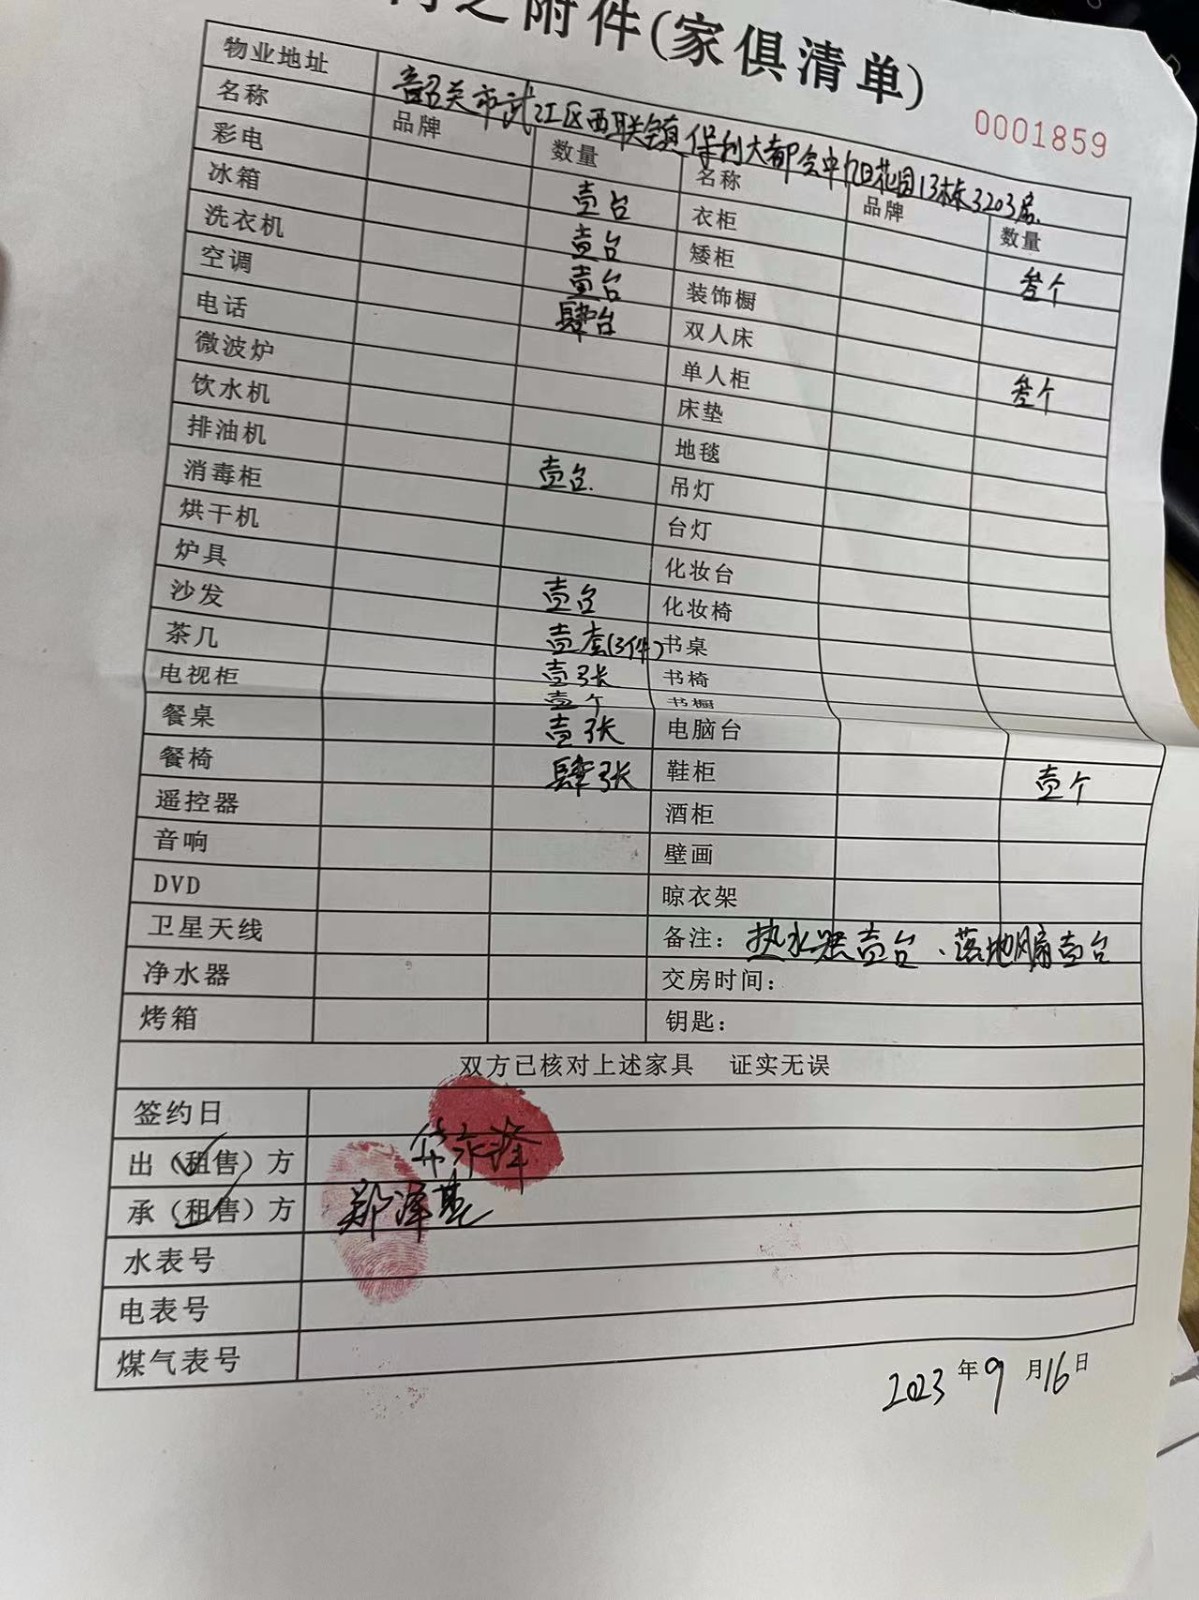 之附件(家俱清单)
0001859
物业地址 韶关市武江区西联镇保利大都会中悦花园13栋3203房
名称 品牌 数量 名称 品牌 数量
彩电 壹台 衣柜 叁个
冰箱 壹台 矮柜
洗衣机 壹台 装饰橱
空调 肆台 双人床 叁个
电话 单人柜
微波炉 床垫
饮水机 地毯
排油机 壹台 吊灯
消毒柜 台灯
烘干机 化妆台
炉具 壹台 化妆椅
沙发 壹套(3件) 书桌
茶几 壹张 书椅
电视柜 壹个 书橱
餐桌 壹张 电脑台
餐椅 肆张 鞋柜 壹个
遥控器 酒柜
音响 壁画
DVD 晾衣架
卫星天线 备注: 热水器壹台、落地扇壹台
净水器 交房时间:
烤箱 钥匙:
双方已核对上述家具 证实无误
签约日
出(租售)方
承(租售)方 郑泽基
水表号
电表号
煤气表号
2023年9月16日